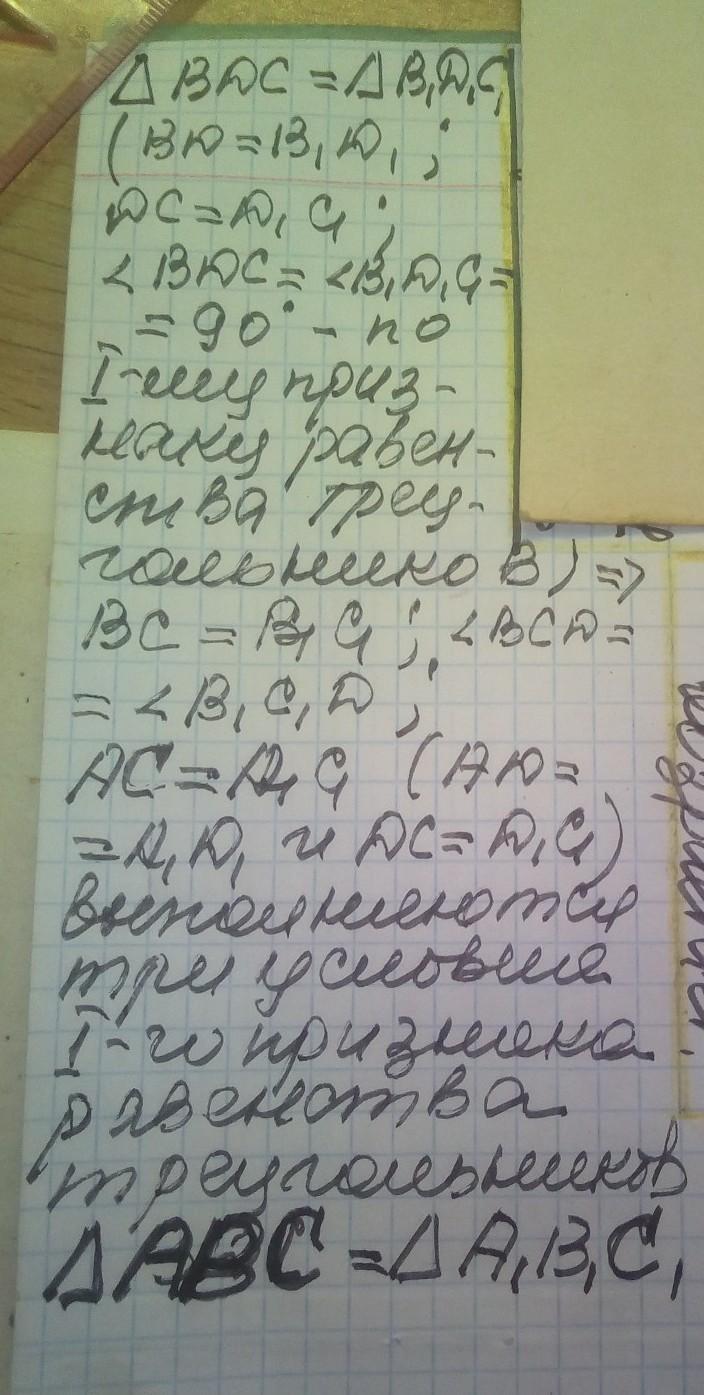 Δ BDC = Δ B₁D₁C₁
(BD = B₁D₁ ;
DC = D₁C₁ ;
∠BDC = ∠B₁D₁C₁ =
= 90° - по
I-му приз-
наку равен-
ства треу-
гольников) ⇒
BC = B₁C₁ ; ∠BCD =
= ∠B₁C₁D ;
AC = A₁C₁ (AD =
= A₁D₁ и DC = D₁C₁)
выполняются
три условия
I-го признака
равенства
треугольников
ΔABC = ΔA₁B₁C₁